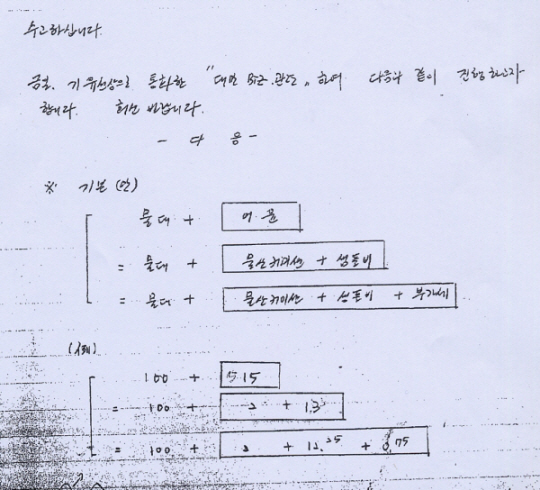 수고하십니다.
금일, 기 유선상으로 통화한 "대만 건 관련" 하여 다음과 같이 진행하고자
합니다. 회신 바랍니다.
- 다 음 -
※ 기본 (안)
물대 + 어음
= 물대 + 물산커미션 + 샘플비
= 물대 + 물산커미션 + 샘플비 + 부가세
(예)
100 + 15
= 100 + 2 + 13
= 100 + 2 + 12.25 + 0.75